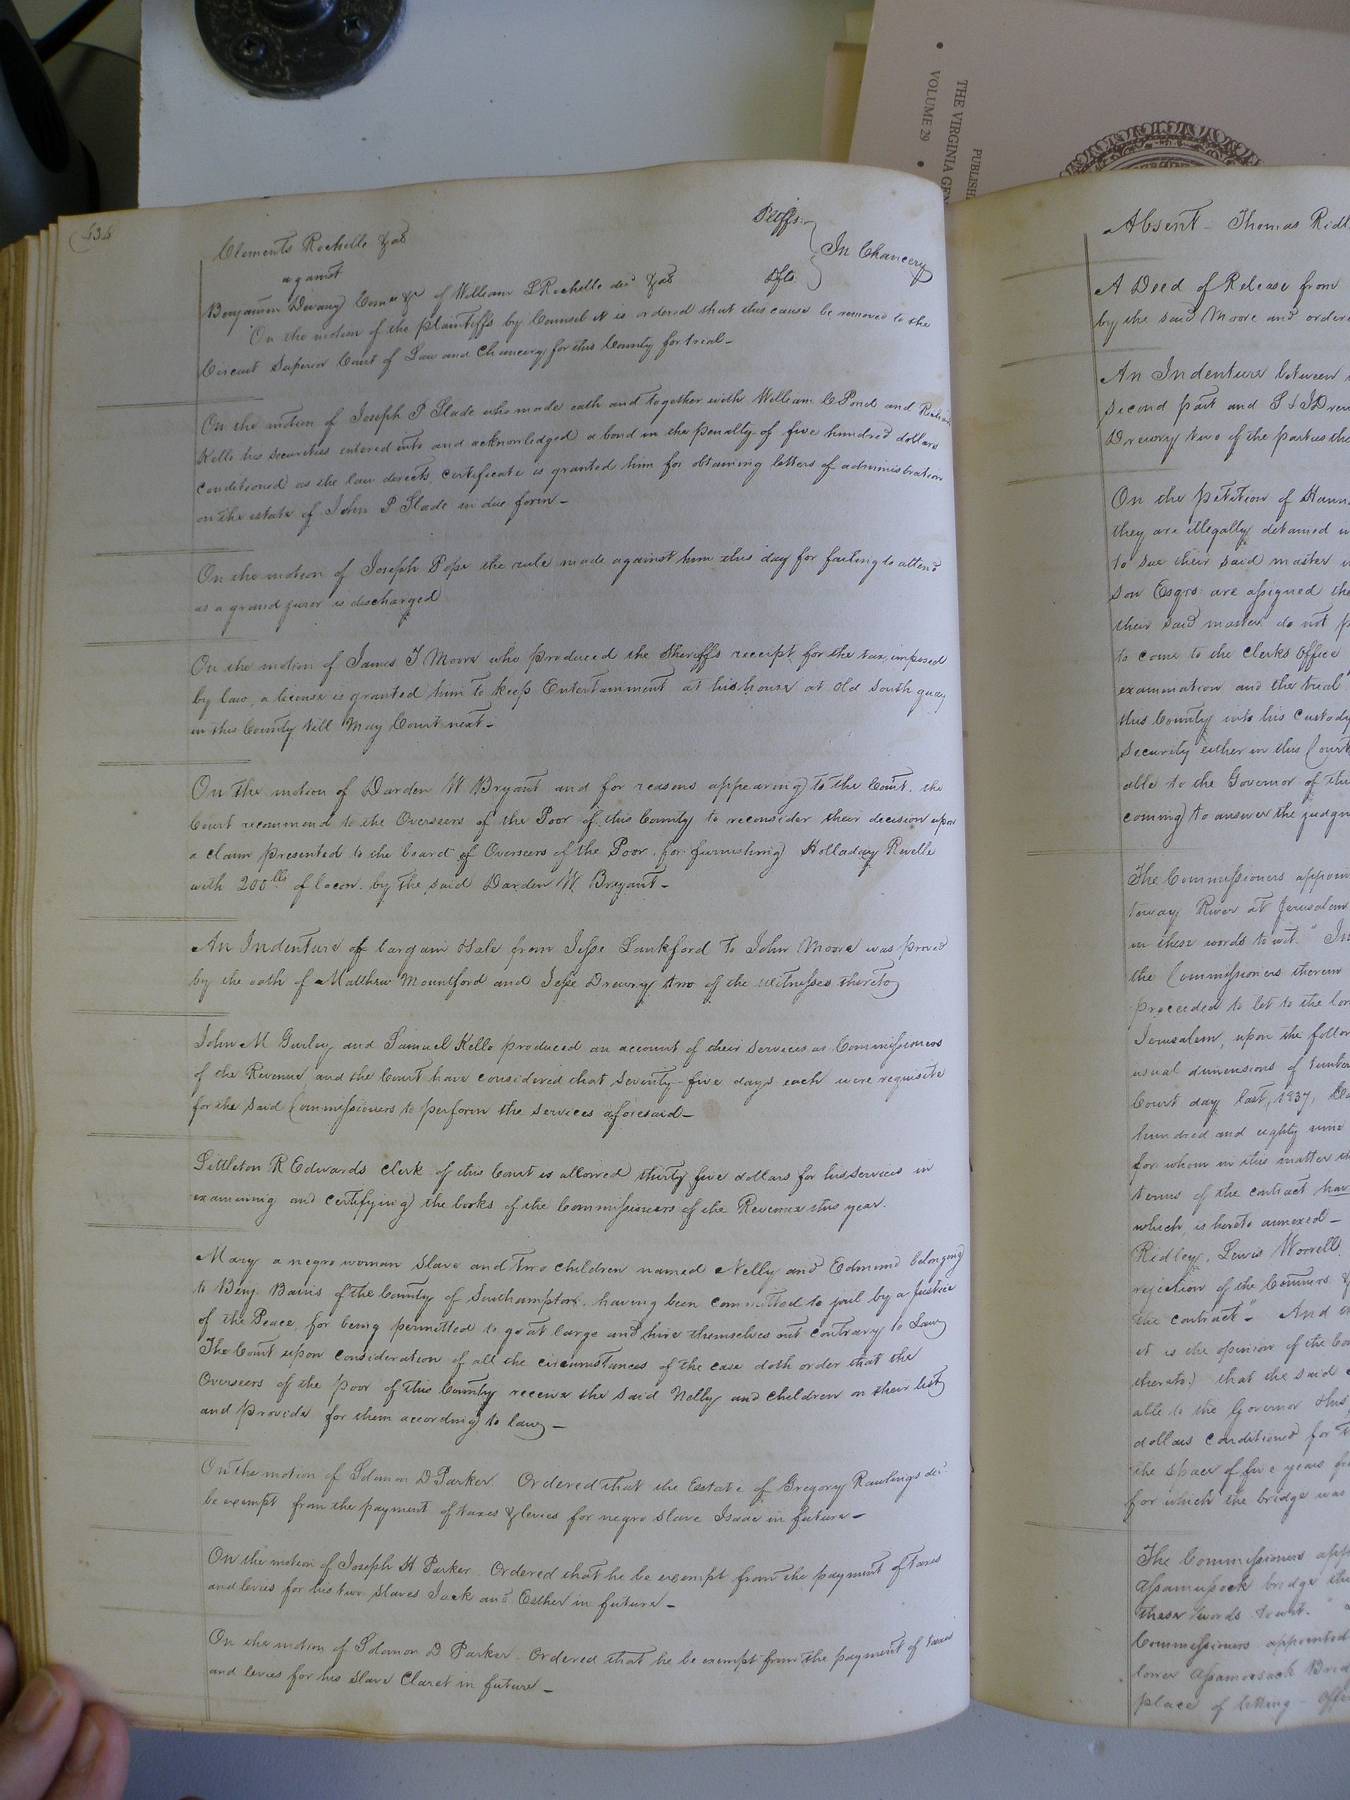 434
Clements Rochelle & als Pltffs.
against In Chancery
Benjamin Devany Comr &c of William L Rochelle decd & als Dfts
On the motion of the plaintiffs by Counsel it is ordered that this cause be removed to the
Circuit Superior Court of Law and Chancery for this County for trial -
On the motion of Joseph P Slade who made oath and together with William C Pond and
Kello his securities entered into and acknowledged a bond in the penalty of five hundred dollars
conditioned as the law directs, certificate is granted him for obtaining letters of administration
on the estate of John P Slade in due form -
On the motion of Joseph Pope the rule made against him this day for failing to attend
as a grand juror is discharged
On the motion of James T Moore who produced the Sheriffs receipt for the tax imposed
by law, a license is granted him to keep Entertainment at his house at Old South quay
in this County till May Court next -
On the motion of Darden W Bryant and for reasons appearing to the Court, the
Court recommend to the Overseers of the Poor of this County to reconsider their decision upon
a claim presented to the board of Overseers of the Poor, for furnishing Holladay Revelle
with 200 lbs of bacon by the said Darden W. Bryant -
An Indenture of bargain & sale from Jesse Lankford to John Moore was proved
by the oath of Matthew Mountford and Jesse Drewry two of the witnesses thereto
John M Gurley and Samuel Kello produced an account of their services as Commissioners
of the Revenue and the Court have considered that seventy-five days each were requisite
for the said Commissioners to perform the services aforesaid -
Littleton R Edwards clerk of this Court is allowed thirty five dollars for his services in
examining and certifying the books of the Commissioners of the Revenue this year.
Mary a negro woman slave and two children named Nelly and Edmund belonging
to Benj. Bains of the County of Southampton, having been committed to jail by a Justice
of the Peace, for being permitted to go at large and hire themselves out contrary to Law
The Court upon consideration of all the circumstances of the case doth order that the
Overseers of the poor of this County receive the said Nelly and children on their list
and provide for them according to law -
On the motion of Solomon D Parker Ordered that the Estate of Gregory Rawlings decd
be exempt from the payment of taxes & levies for negro slave Isaac in future -
On the motion of Joseph H Parker Ordered that he be exempt from the payment of taxes
and levies for his two slaves Jack and Esther in future -
On the motion of Solomon D Parker Ordered that he be exempt from the payment of taxes
and levies for his slave Claret in future -
THE VIRGINIA GEN
VOLUME 29
PUBLISH
Absent - Thomas Ridl
A Deed of Release from
by the said Moore and ordere
An Indenture between
second part and S & J Drew
Drewry two of the parties the
On the petition of Hann
they are illegally detained
to sue their said master
son Esqrs are assigned the
their said master do not p
to come to the Clerks Office
examination and the trial
this County into his Custody
security either in this Court
able to the Governor of thi
coming to answer the judgm
The Commissioners appoin
toway River at Jerusalem
in these words to wit. " In
the Commissioners therein
proceeded to let to the lo
Jerusalem, upon the follow
usual dimensions of timber
Court day last, 1837,
hundred and eighty nine
for whom in this matter
terms of the contract hav
which is hereto annexed -
Ridley, Lewis Worrell,
rejection of the Commrs
the contract" - And
it is the opinion of the Co
thereto) that the said
able to the Governor this
dollars conditioned for
the space of five years
for which the bridge was
The Commissioners app
Assamusock bridge
these words to wit. "
Commissioners appointed
lower Assamoosack Brid
place of letting -